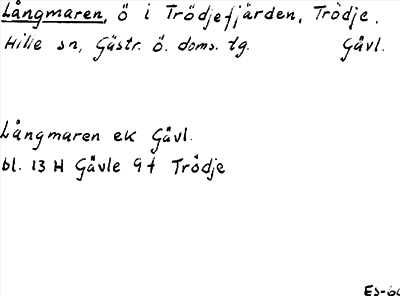 Långmaren, ö i Trödjefjärden, Trödje.
Hille sn, Gästr. ö. doms. tg. Gävl.
Långmaren ek Gävl.
bl. 13 H Gävle 9 f Trödje